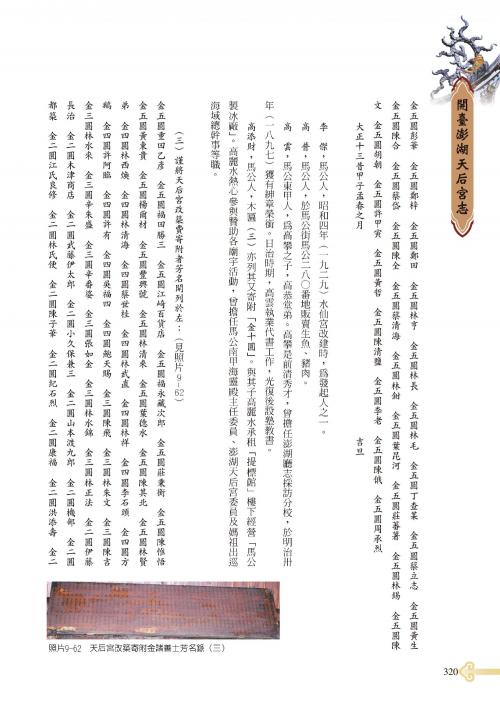 開臺澎湖天后宮志
金五圓彭華　金五圓鄭梓　金五圓鄭田　金五圓林亨　金五圓林長　金五圓林毛　金五圓丁查某　金五圓蔡立志　金五圓黃生
金五圓陳合　金五圓蔡岱　金五圓陳全　金五圓蔡清海　金五圓林鉗　金五圓葉昆河　金五圓莊蕃薯　金五圓林錫　金五圓陳
文　金五圓胡朝　金五圓許甲寅　金五圓黃哲　金五圓陳清鹽　金五圓李老　金五圓陳俄　金五圓周承烈
大正十三昔甲子孟春之月　吉旦
李　傑，馬公人，昭和四年（一九二九）水仙宮改建時，為發起人之一。
高　普，馬公人，於馬公街馬公二八〇番地販賣生魚、豬肉。
高　雲，馬公東甲人，為高攀之子，高恭堂弟。高攀是前清秀才，曾擔任澎湖廳志採訪分校，於明治卅
年（一八九七）獲有紳章榮銜。日治時期，高雲執業代書工作，光復後設塾教書。
高添財，馬公人，木匾（三）亦列其又寄附「金十圓」。與其子高麗水承租「提標館」樓下經營「馬公
製冰廠」。高麗水熱心參與贊助各廟宇活動，曾擔任馬公南甲海靈殿主任委員、澎湖天后宮委員及媽祖出巡
海域總幹事等職。
（三）謹將天后宮改築費寄附者芳名開列於左：（見照片9-62）
金五圓重田乙彥　金五圓福田勝三　金五圓江崎百貨店　金五圓福永藏次郎　金五圓莊東衡　金五圓陳惟悟
金五圓黃東貴　金五圓楊爾材　金五圓豐興號　金五圓林清來　金五圓葉德水　金五圓陳其北　金五圓林賢
弟　金四圓林西煥　金四圓林清海　金四圓蔡世桂　金四圓林武直　金四圓林祥　金四圓李石頭　金四圓方
鵝　金四圓許阿臨　金四圓許有　金四圓吳福四　金四圓鮑天賜　金三圓陳飛　金三圓林朱文　金三圓陳吉
金三圓林水來　金三圓辛朱盛　金三圓辛番婆　金三圓張如金　金三圓林水錦　金三圓林正法　金二圓伊藤
長治　金二圓木津商店　金二圓武藤伊太郎　金二圓小久保兼三　金二圓山本波九郎　金二圓機部　金二圓
都築　金二圓江氏良修　金二圓林氏便　金二圓陳子華　金二圓紀石烈　金二圓康福　金二圓洪添壽　金二
照片9-62　天后宮改築寄附金諸善士芳名錄（三）
320